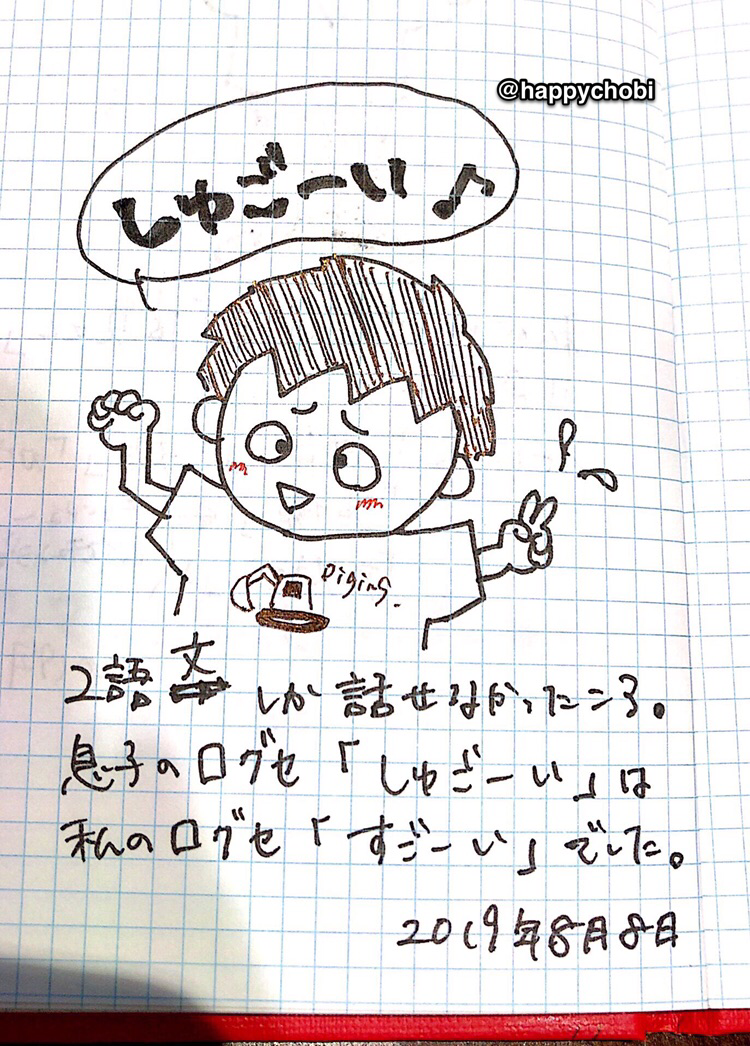 @happychobi
しゅごーい♪
Diging.
2語文しか話せなかったころ。
息子の口グセ「しゅごーい」は
私の口グセ「すごーい」でした。
2019年8月8日